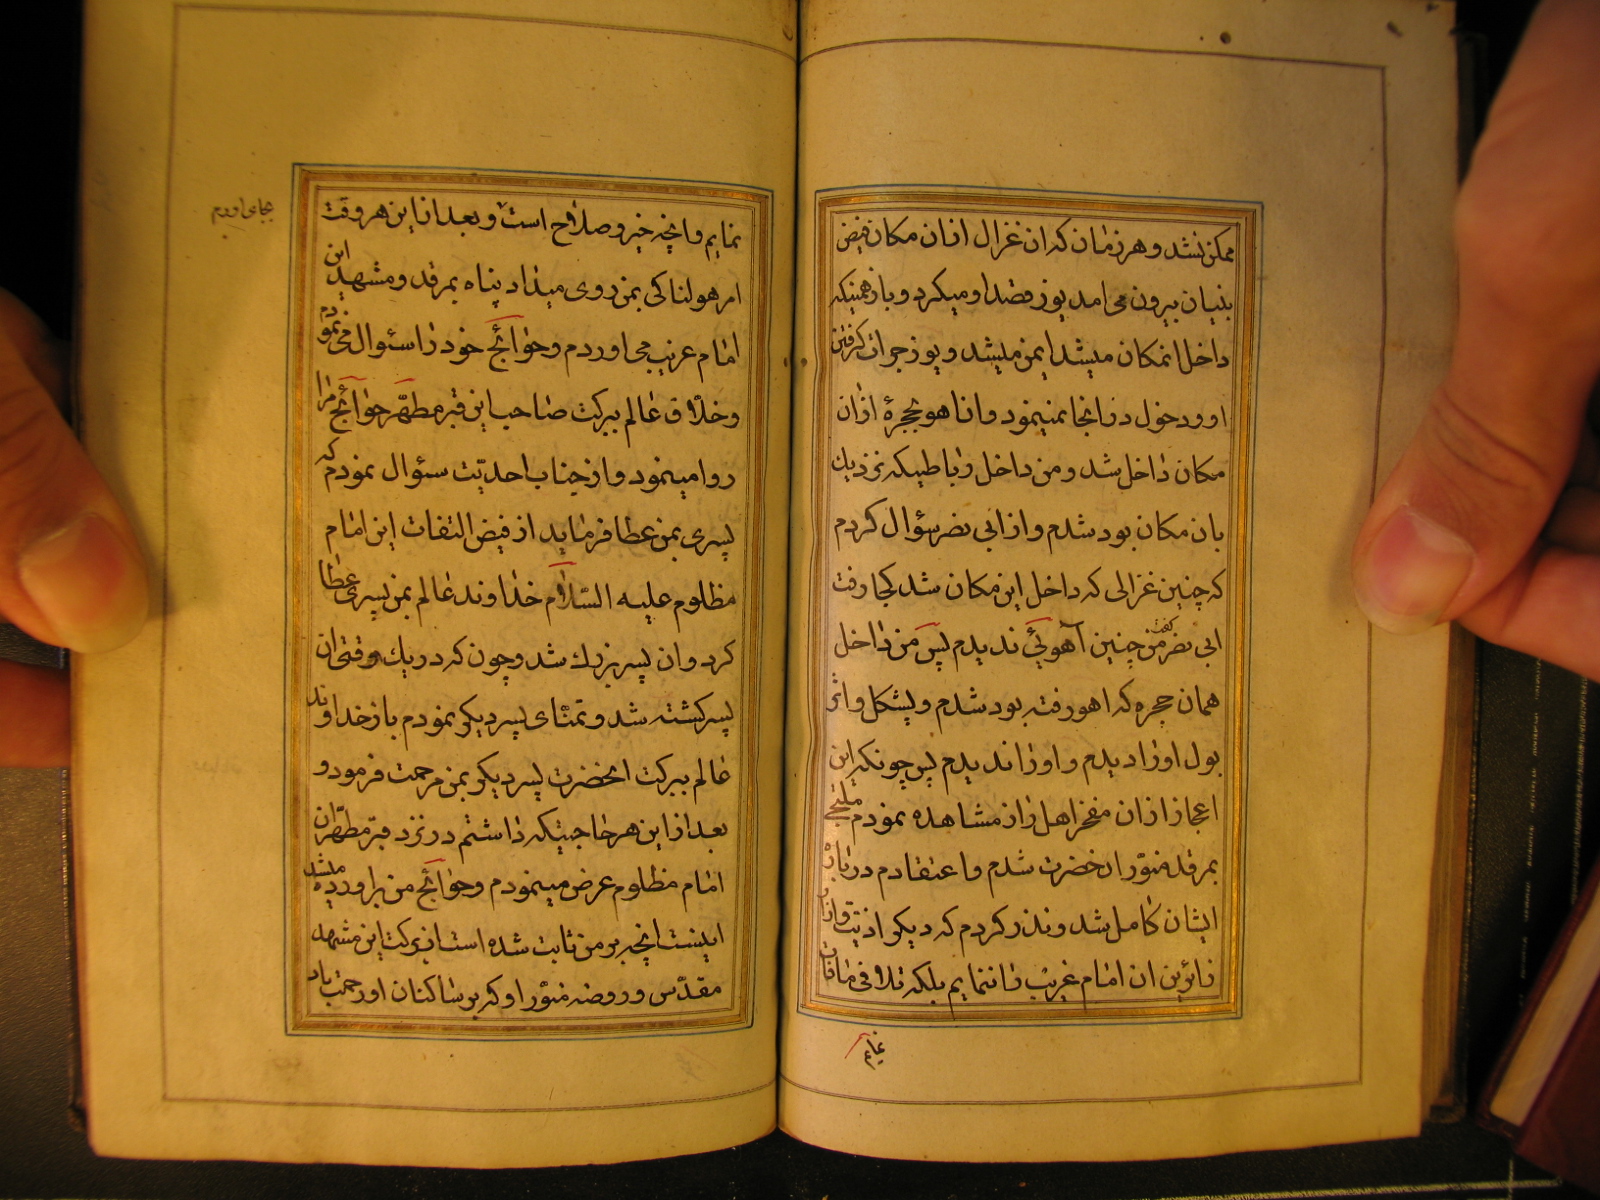 ممکن نشد و هر زمان که ان غزال از ان مکان فیض
بنیان بیرون می امد یوز قصد او میکرد و باز همینکه
داخل انمکان میشد ایمن میشد و یوز جرات کرفتن
او و دخول در انجا نمینمود و ان اهو بحجرهٔ از ان
مکان داخل شد و من داخل رباطیکه نزدیک
بان مکان بود شدم و از ابی نضر سؤال کردم
که چنین غزالی که داخل این مکان شد کجا رفت
ابی نضر گفت من چنین آهوئي ندیدم پس من داخل
همان حجره که اهو رفته بود شدم و پشکل و اثر
بول او را دیدم و او را ندیدم پس چونکه این
اعجاز از ان مفخر اهل راز مشاهده نمودم ملتجی
بمرقد منوّر انحضرت شدم و اعتقادم در بارهٔ
ایشان کامل شد و نذر کردم که دیکر اذیت و
زائرین ان امام غریب را ننمایم بلکه تلافی مافات
نمایم
نمایم و انچه خیر و صلاح است و بعد از این هر وقت
امر هولناکی بمن روی میداد پناه بمرقد و مشهد این
بجای اوردم
امام غریب می اوردم و حوآئج خود را سئوال می نمودم
و خلّاق عالم ببرکت صاحب این قبر مطهّر حوآئج مرا
روا مینمود و از جناب احدیّت سئوال نمودم که
پسری بمن عطا فرماید از فیض التفات این امام
مظلوم علیه السّلام خداوند عالم بمن پسری عطا
کرد و ان پسر بزرك شد و چون که در یك وقتی ان
پسر کشته شد و تمنّای پسر دیکر نمودم باز خداوند
عالم ببرکت انحضرت پسر دیکر بمن مرحمت فرمود و
بعد از این هر حاجتیکه داشتم در نزد قبر مطهّر ان
امام مظلوم عرض مینمودم و حوآئج من براورده میشد
اینست انچه بر من ثابت شده است از برکت این مشهد
مقدّس و روضه منوّر او که بر ساکنان او رحمت باد